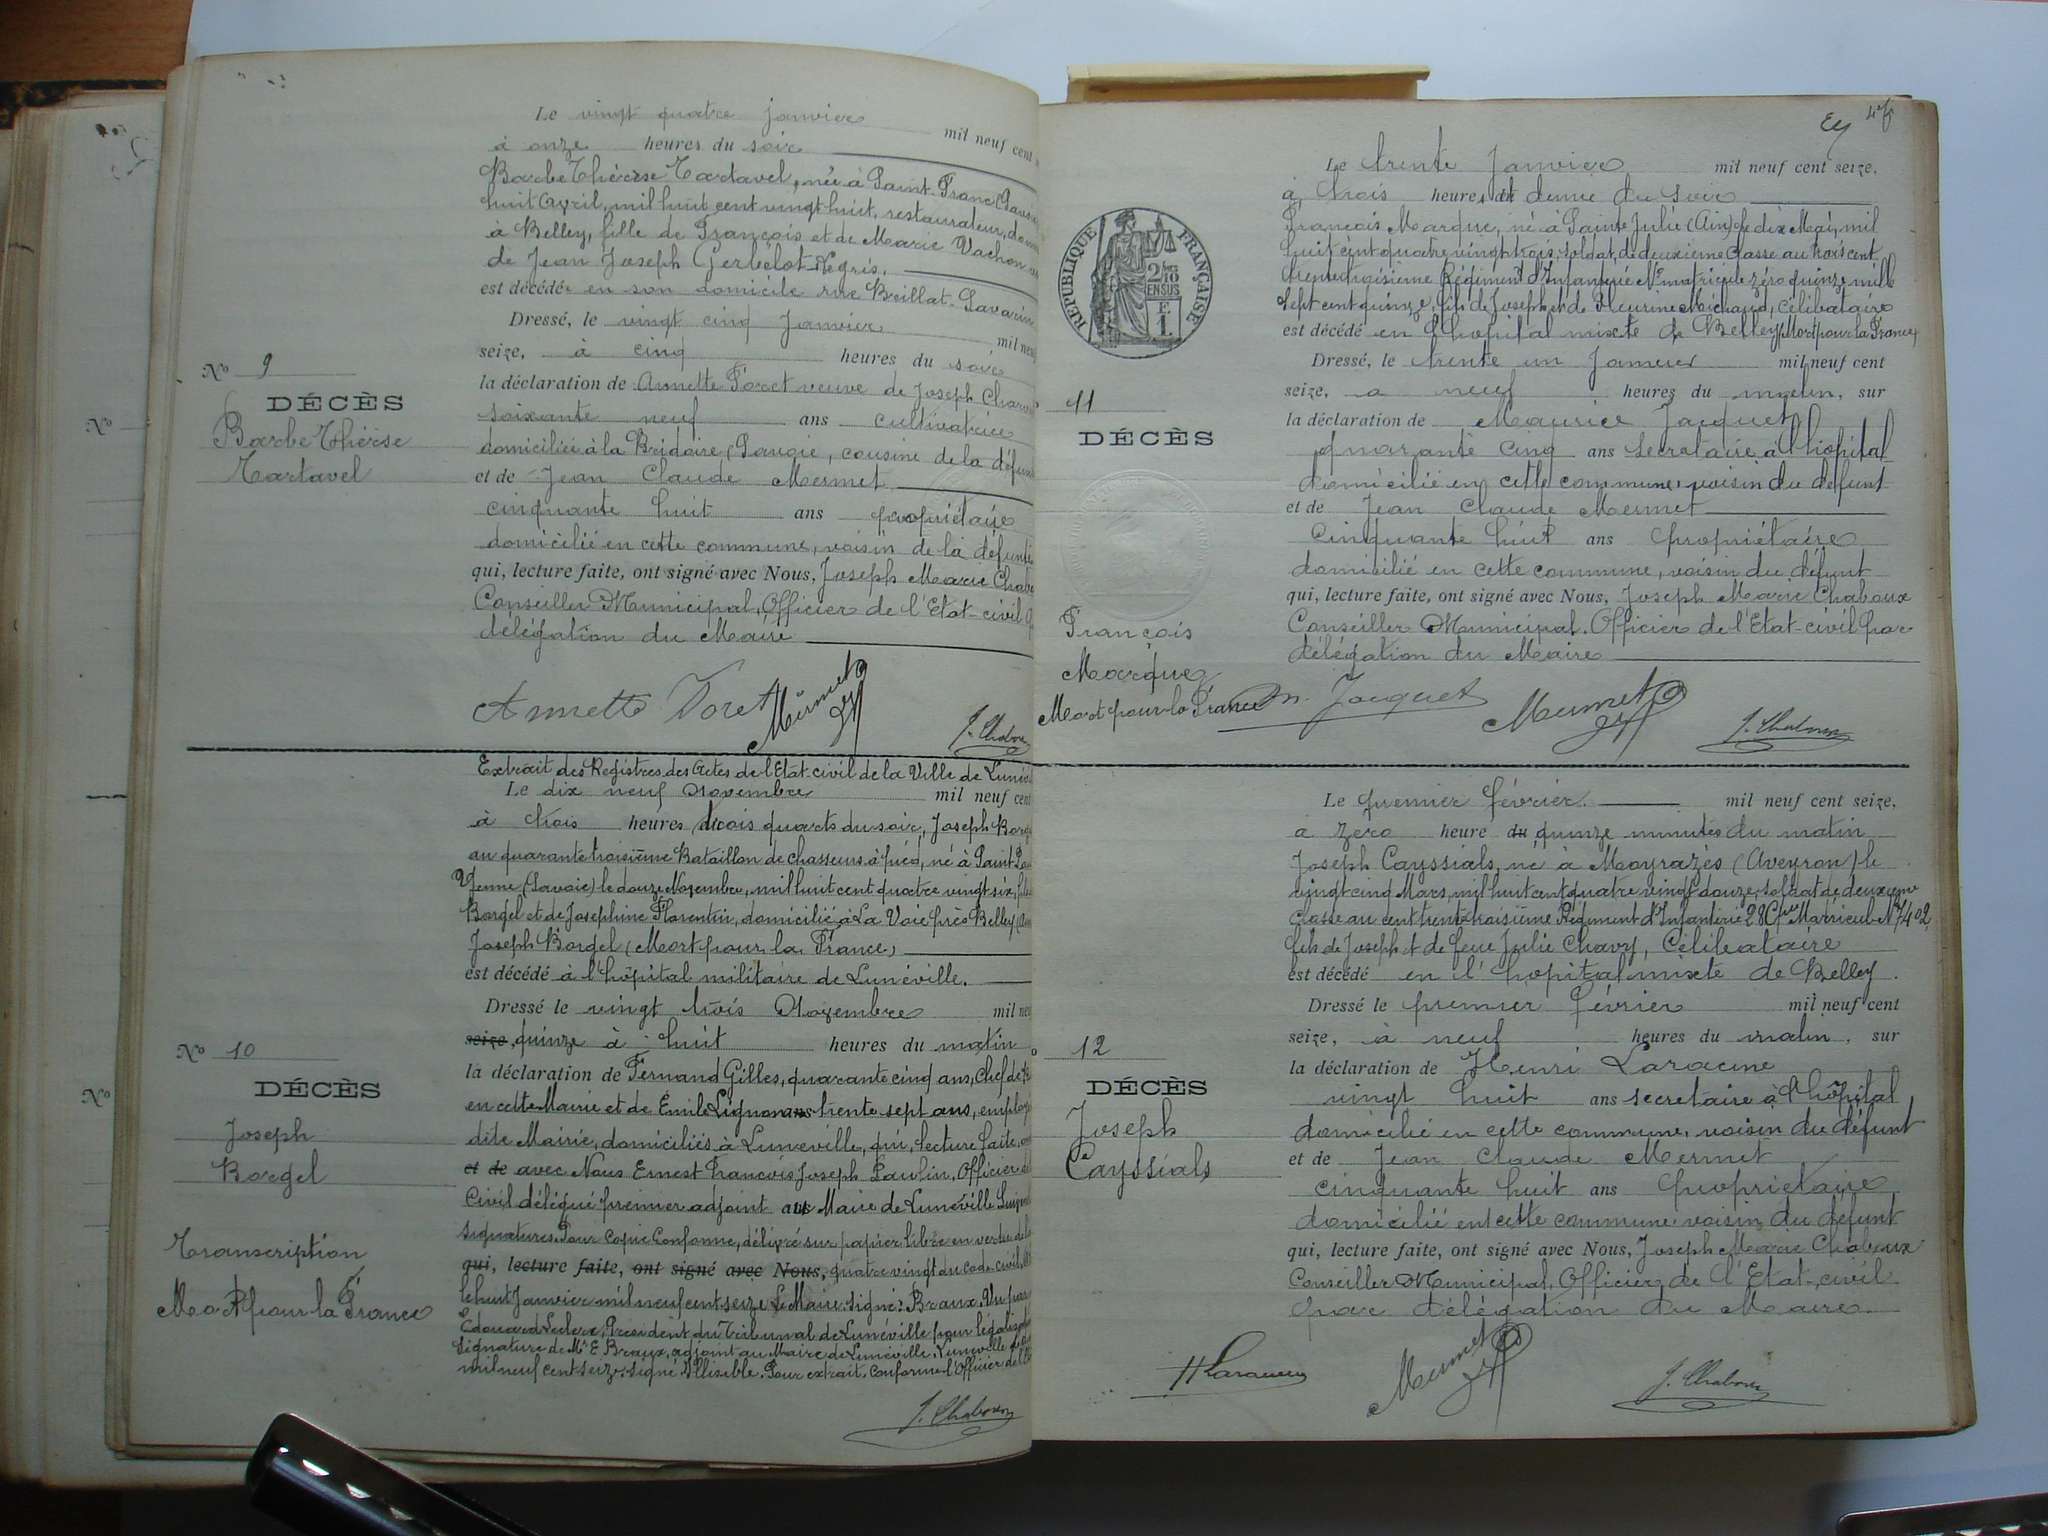 Le vingt quatre janvier mil neuf cent
à onze heures du soir
Barbe Thérèse Tartavel, née à Saint Franc (Savoie
huit Avril, mil huit cent vingt huit, restaurateur,
à Belley, fille de François et de Marie Vachon
de Jean Joseph Gerbelot-Negris.
est décédée en son domicile rue Brillat-Savarin
Dressé, le vingt cinq Janvier mil neuf
seize, à cinq heures du soir
la déclaration de Annette Foret veuve de Joseph
soixante neuf ans cultivatrice
domiciliée à la Bridoire, Savoie, cousine de la défunte
et de Jean Claude Mermet
cinquante huit ans propriétaire
domicilié en cette commune, voisin de la défunte
qui, lecture faite, ont signé avec Nous, Joseph Marie Chab
Conseiller Municipal, Officier de l'Etat-civil
délégation du Maire
Nº 9
DÉCÈS
Barbe Thérèse
Tartavel
Annette Foret Mermet J. Chaboux
Extrait des Registres des Actes de l'Etat-civil de la Ville de Luné
Le dix neuf Novembre mil neuf cent
à trois heures trois quarts du soir, Joseph Borgel
au quarante troisième Bataillon de chasseurs à pied, né à Saint
Yenne (Savoie) le douze Novembre, mil huit cent quatre vingt six,
Borgel et de Joséphine Florentin, domicilié à La Voie près Belley
Joseph Borgel (Mort pour la France)
est décédé à l'hôpital militaire de Lunéville.
Dressé le vingt trois Novembre mil neu
seize, quinze à huit heures du matin
la déclaration de Fernand Gilles, quarante cinq ans, Chef de
en cette Mairie et de Emile Lignon ans trente sept ans, employ
dite Mairie, domiciliés à Lunéville, qui, lecture faite,
et de avec Nous Ernest François Joseph Paulin, Officier
Civil délégué premier adjoint au Maire de Lunéville
signatures. Pour copie Conforme, délivré sur papier libre en vertu de
qui, lecture faite, ont signé avec Nous, quatre vingt du code civil,
le huit Janvier mil neuf cent seize Le Maire signé: Braux. Vu par
Edouard Leclerc, Président du Tribunal de Lunéville pour
signature de Mr E Braux, adjoint au Maire de Lunéville. Lunéville
mil neuf cent seize. signé Illisible. Pour extrait conforme l'Officier de
Nº 10
DÉCÈS
Joseph
Borgel
Transcription
Mort pour la France
J. Chaboux
Le trente Janvier mil neuf cent seize,
à trois heures et demie du soir
François Marque, né à Sainte Julie (Ain) le dix Mai, mil
huit cent quatre vingt trois, soldat de deuxième classe au trois cent
trente troisième Régiment d'Infanterie Nº matricule zéro quinze mille
sept cent quinze, fils de Joseph et de Fleurine Michaud, Célibataire
est décédé en l'hôpital mixte de Belley (Mort pour la France)
Dressé, le trente un Janvier mil neuf cent
seize, à neuf heures du matin, sur
la déclaration de Maurice Jacquet
quarante cinq ans secrétaire à l'hôpital
domicilié en cette commune, voisin du défunt
et de Jean Claude Mermet
Cinquante huit ans propriétaire
domicilié en cette commune, voisin du défunt
qui, lecture faite, ont signé avec Nous, Joseph Marie Chaboux
Conseiller Municipal. Officier de l'Etat-civil par
délégation du Maire
RÉPUBLIQUE FRANÇAISE
11
DÉCÈS
François
Marque
Mort pour la France
M. Jacquet Mermet J. Chaboux
Le premier février. mil neuf cent seize,
à zéro heure du quinze minutes du matin
Joseph Cayssials, né à Moyrazès (Aveyron) le
vingt cinq Mars, mil huit cent quatre vingt douze, soldat de deuxième
classe au cent trente troisième Régiment d'Infanterie 28 Cie Matricule Nº 7402,
fils de Joseph et de feue Julie Chavy, Célibataire
est décédé en l'hôpital mixte de Belley.
Dressé le premier février mil neuf cent
seize, à neuf heures du matin, sur
la déclaration de Henri Laracine
vingt huit ans secrétaire à l'hôpital,
domicilié en cette commune, voisin du défunt
et de Jean Claude Mermet
cinquante huit ans propriétaire
domicilié en cette commune voisin du défunt
qui, lecture faite, ont signé avec Nous, Joseph Marie Chaboux
Conseiller Municipal, Officier de l'Etat-civil
par délégation du Maire.
12
DÉCÈS
Joseph
Cayssials
H Laracine Mermet J. Chaboux